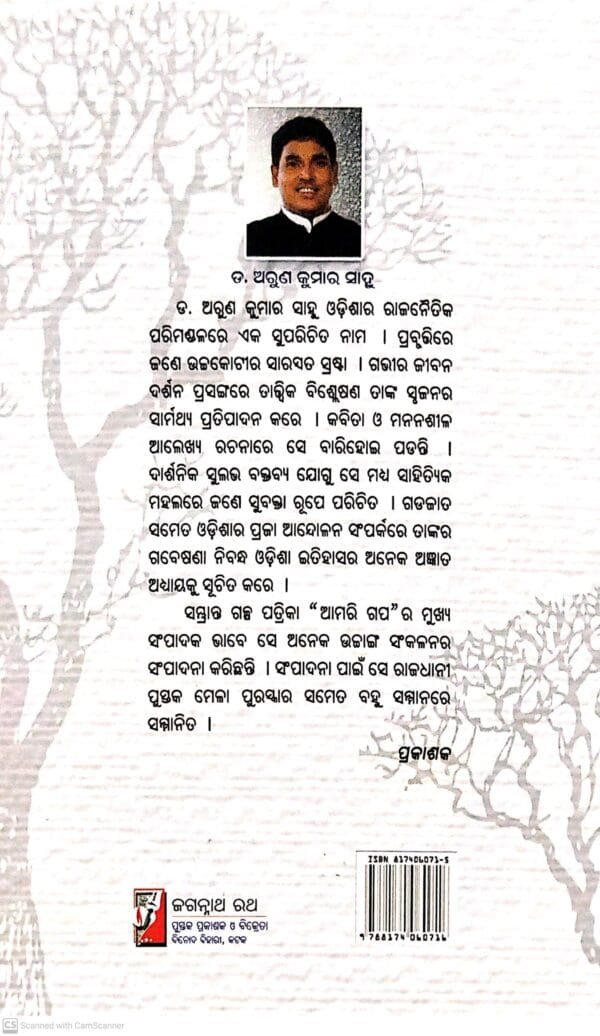 ଡ. ଅରୁଣ କୁମାର ସାହୁ
ଡ. ଅରୁଣ କୁମାର ସାହୁ ଓଡ଼ିଶାର ରାଜନୈତିକ
ପରିମଣ୍ଡଳରେ ଏକ ସୁପରିଚିତ ନାମ । ପ୍ରବୃତ୍ତିରେ
ଜଣେ ଉଚ୍ଚକୋଟୀର ସାରସତ ସ୍ରଷ୍ଟା । ଗଭୀର ଜୀବନ
ଦର୍ଶନ ପ୍ରସଙ୍ଗରେ ତାତ୍ତ୍ୱିକ ବିଶ୍ଳେଷଣ ତାଙ୍କ ସୃଜନର
ସାର୍ମଥ୍ୟ ପ୍ରତିପାଦନ କରେ । କବିତା ଓ ମନନଶୀଳ
ଆଲେଖ୍ୟ ରଚନାରେ ସେ ବାରିହୋଇ ପଡନ୍ତି ।
ଦାର୍ଶନିକ ସୁଲଭ ବକ୍ତବ୍ୟ ଯୋଗୁ ସେ ମଧ୍ୟ ସାହିତ୍ୟିକ
ମହଲରେ ଜଣେ ସୁବକ୍ତା ରୂପେ ପରିଚିତ । ଗଡଜାତ
ସମେତ ଓଡ଼ିଶାର ପ୍ରଜା ଆନ୍ଦୋଳନ ସଂପର୍କରେ ତାଙ୍କର
ଗବେଷଣା ନିବନ୍ଧ ଓଡ଼ିଶା ଇତିହାସର ଅନେକ ଅଜ୍ଞାତ
ଅଧ୍ୟାୟକୁ ସୂଚିତ କରେ ।
ସମ୍ଭ୍ରାନ୍ତ ଗଳ୍ପ ପତ୍ରିକା “ଆମରି ଗପ”ର ମୁଖ୍ୟ
ସଂପାଦକ ଭାବେ ସେ ଅନେକ ଉଚ୍ଚାଙ୍ଗ ସଂକଳନର
ସଂପାଦନା କରିଛନ୍ତି । ସଂପାଦନା ପାଇଁ ସେ ରାଜଧାନୀ
ପୁସ୍ତକ ମେଳା ପୁରସ୍କାର ସମେତ ବହୁ ସମ୍ମାନରେ
ସମ୍ମାନିତ ।
ପ୍ରକାଶକ
ISBN 817406071-5
9 788174 060716
ଜଗନ୍ନାଥ ରଥ
ପୁସ୍ତକ ପ୍ରକାଶକ ଓ ବିକ୍ରେତା
ବିନୋଦ ବିହାରୀ, କଟକ
CS Scanned with CamScanner